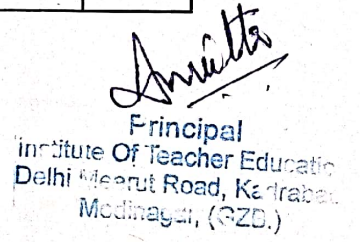 Principal
Institute Of Teacher Educatio
Delhi Meerut Road, Kadrabad
Modinagar, (GZB.)